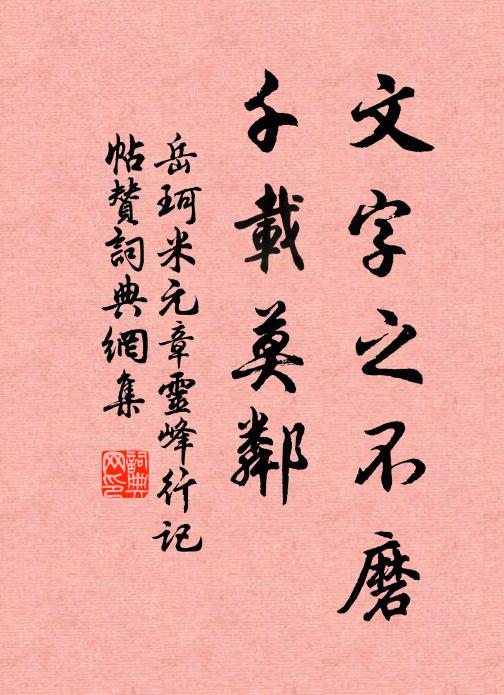 文字之不磨
千載莫鄰
岳珂米元章靈峰行記
帖贊詞典網集
詞典网印